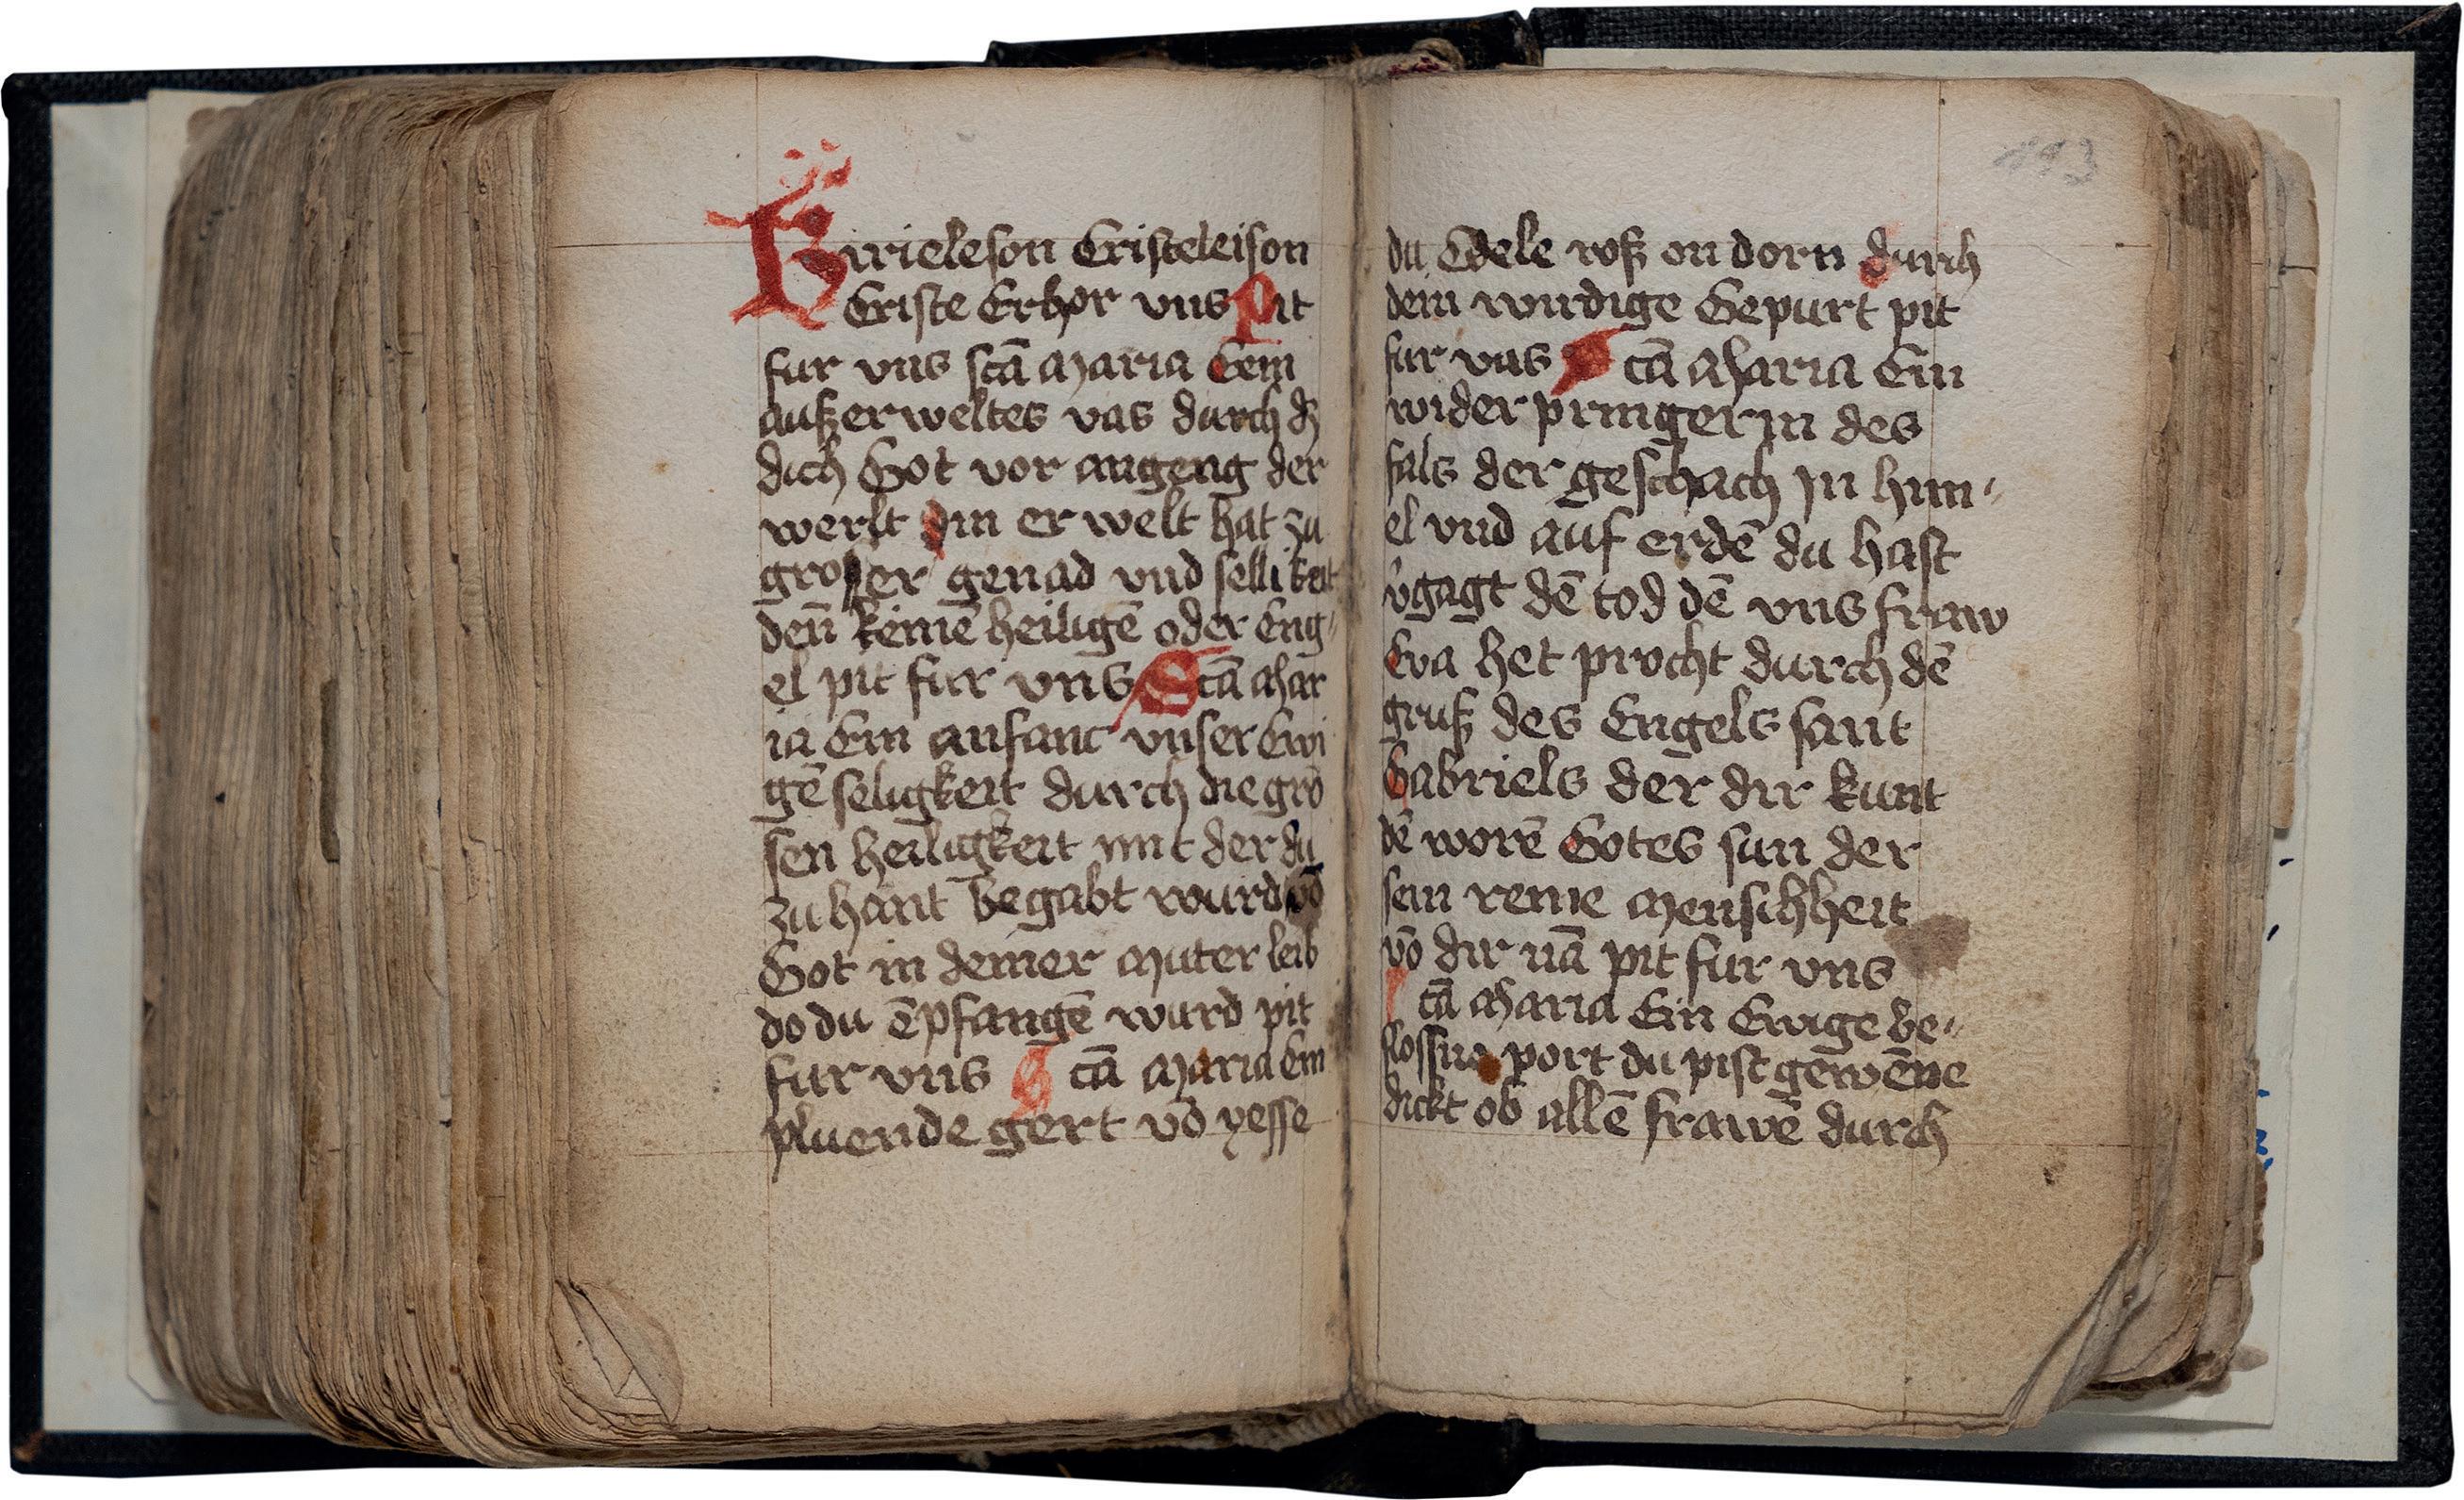 Kirieleson Cristeleison
Criste Erhor vns Pit
fur vns scā Maria Eein
außerweltes vas durch dz
dich Got vor angeng der
werlt din er welt hat zu
groser genad vnd sellikeit
deñ keinē heiligē oder Eng⸗
el pit fur vns Scā Mar
ia Ein anfanc vnser Ewi
gē seligkeit durch die gro
sen heiligkeit mit der du
zu hant begabt wurd vō
Got in deiner Muter leib
do du ēpfangē wurd pit
fur vns S cā Maria Ein
pluende gert vō yesse
193
du Edele roß on dorn durch
dein wirdige Gepurt pit
fur vns S cā Maria Ein
wider pringerin des
fals der geschach in him⸗
el vnd auf erdē du hast
v̄gagt dē tod dē vns fraw
Eva het procht durch dē
gruß des Engels sant
Gabriels der dir kunt
dē worē Gotes sun der
sein reine Menschheit
vō dir nā pit fur vns
S cā Maria Ein Ewige be⸗
slossne port du pist gewēne
dickt ob allē frawē durch